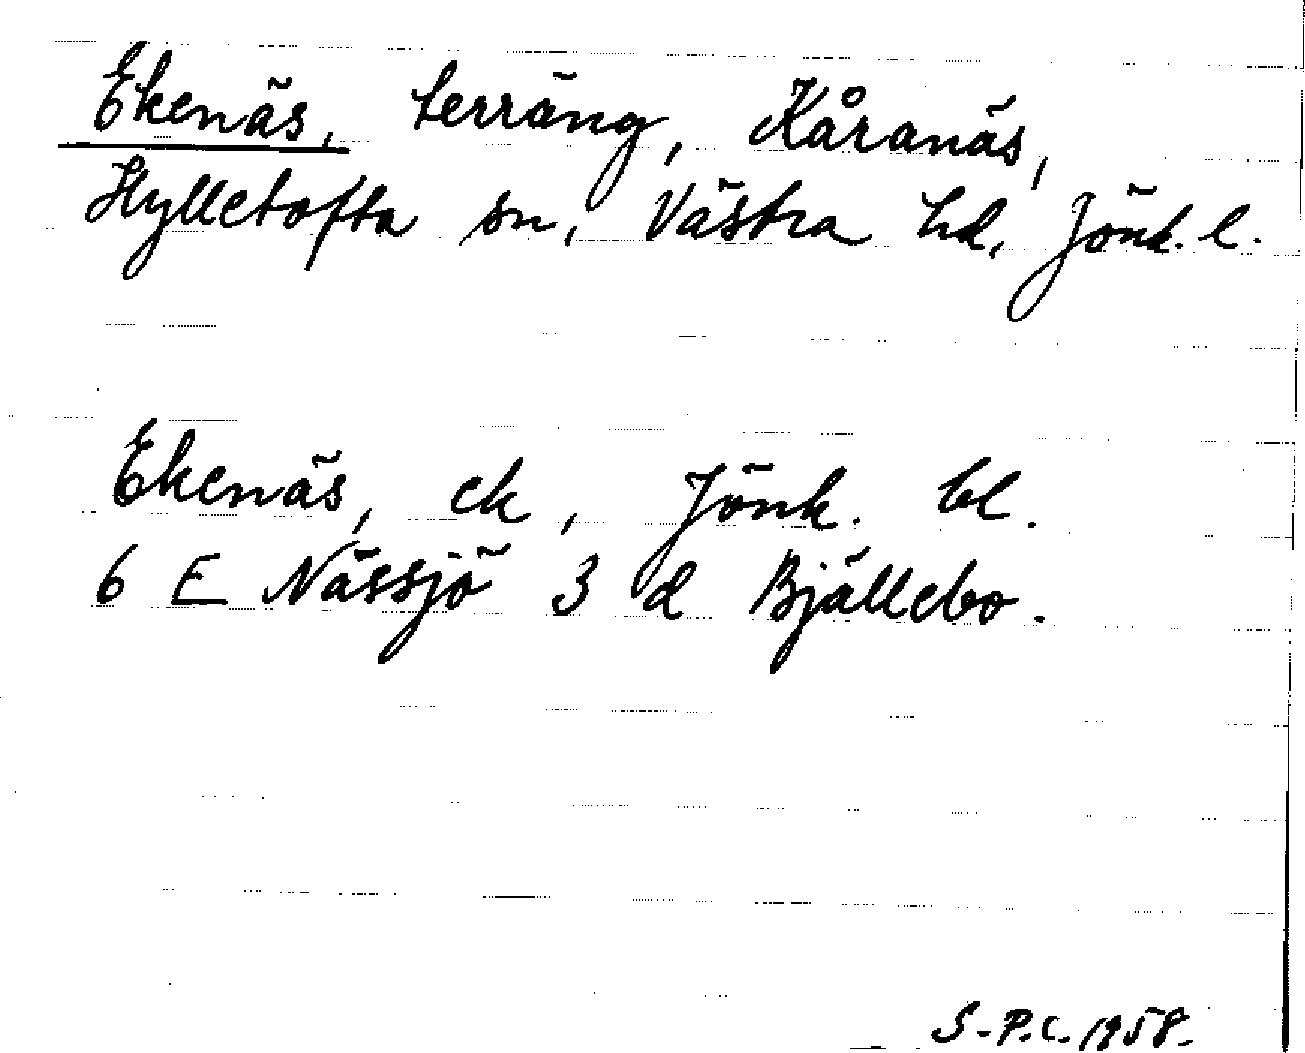 Ekenäs, terräng, Kåranäs,
Hylletofta sn, Västra hd, Jönk. l.
Ekenäs, ek, Jönk. bl.
6 E Nässjö 3 d Bjällebo.
S-P.C. 1958.